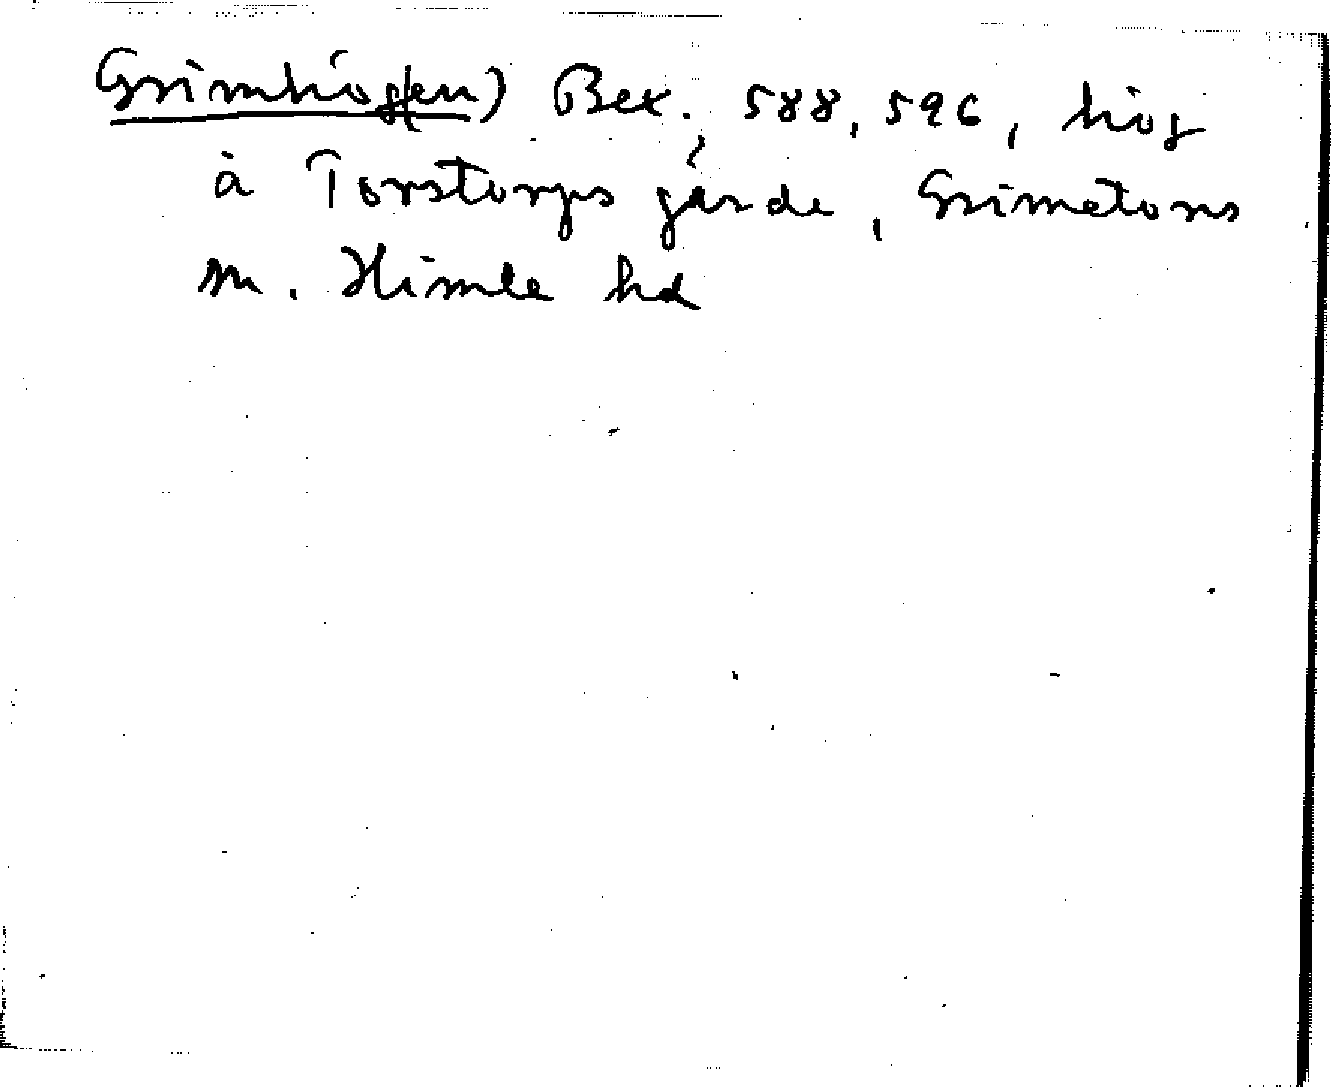 Grimhög(en) Bex. 588, 596, hög
å Torstorps gärde, Grimetons
sn. Himle hd